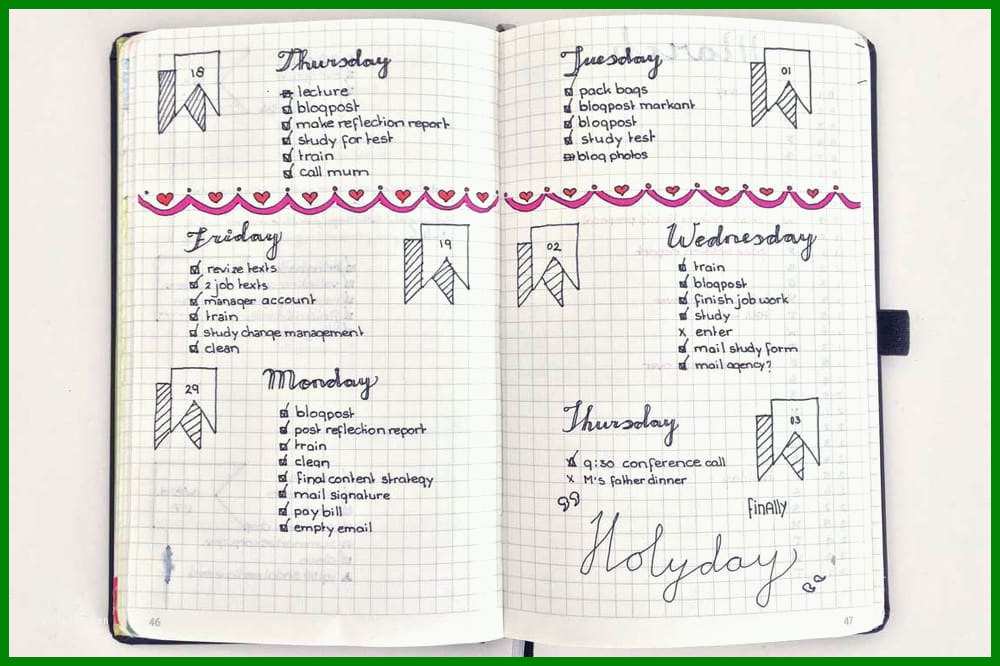 18
Thursday
lecture
blogpost
make reflection report
study for test
train
call mum
19
Friday
revize texts
2 job texts
manager account
train
study change management
clean
29
Monday
blogpost
post reflection report
train
clean
final content strategy
mail signature
pay bill
empty email
46
Tuesday
01
pack bags
blogpost markant
blogpost
study test
blog photos
02
Wednesday
train
blogpost
finish job work
study
x enter
mail study form
mail agency?
Thursday
03
9:30 conference call
x M's father dinner
finally
Holyday
47